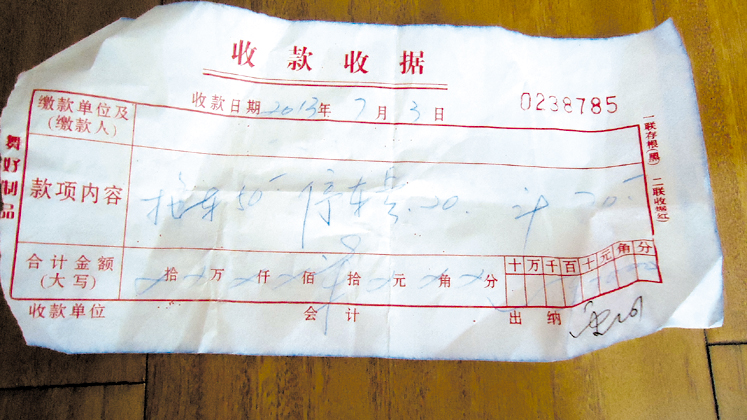 收款收据
收款日期 2013年 7月 3日
0238785
缴款单位及
(缴款人)
款项内容
拖车50- 停车费20. 计70-
合计金额
(大写)
拾 万 仟 佰 拾 元 角 分
十万千百十元角分
收款单位 会计 出纳
一联存根(黑) 二联收据(红)
好制品